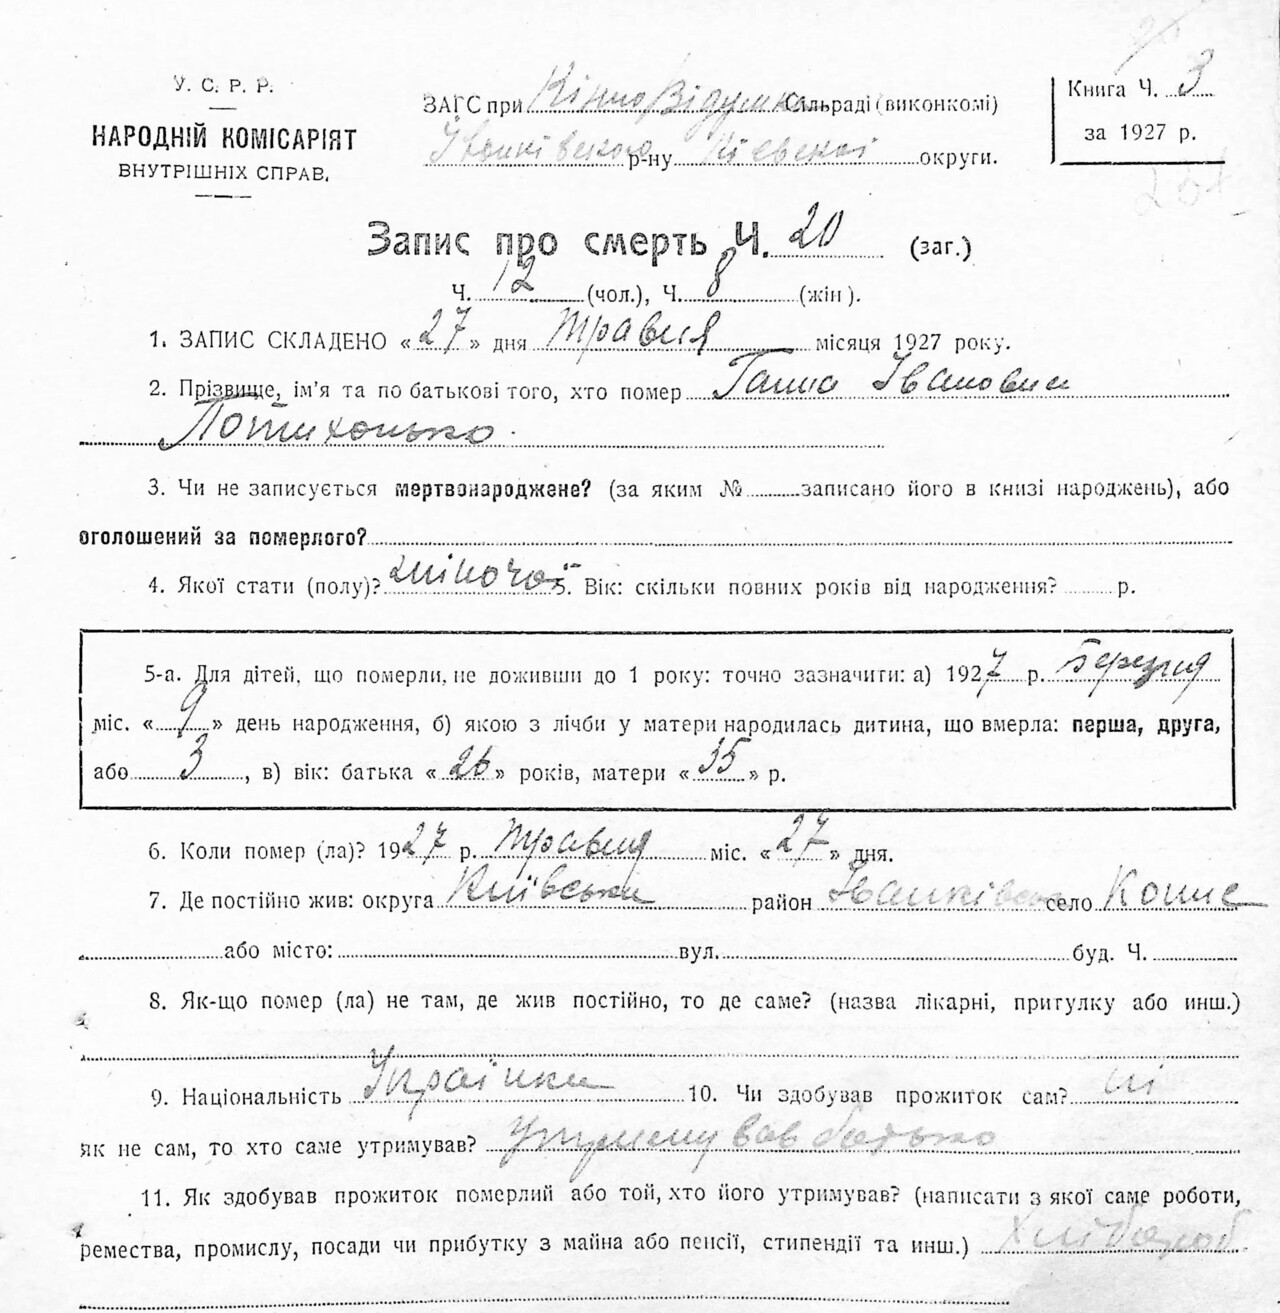 У. С. Р. Р.
НАРОДНІЙ КОМІСАРІЯТ
ВНУТРІШНІХ СПРАВ.
ЗАГС при Сільраді (виконкомі)
Іванківського р-ну Київської округи.
Книга Ч. 3
за 1927 р.
Запис про смерть Ч. 20 (заг.)
Ч. 12 (чол.), Ч. 8 (жін).
1. ЗАПИС СКЛАДЕНО « 27 » дня травня місяця 1927 року.
2. Прізвище, ім'я та по батькові того, хто помер Ганна Івановна
Потихонько.
3. Чи не записується мертвонароджене? (за яким № записано його в книзі народжень), або
оголошений за померлого?
4. Якої стати (полу)? жіночої 5. Вік: скільки повних років від народження? р.
5-а. Для дітей, що померли, не доживши до 1 року: точно зазначити: а) 1927 р. березня
міс. « 9 » день народження, б) якою з лічби у матери народилась дитина, що вмерла: перша, друга,
або 3, в) вік: батька « 26 » років, матери « 35 » р.
6. Коли помер (ла)? 1927 р. травня міс. « 27 » дня.
7. Де постійно жив: округа Київська район Іванківськ село
або місто: вул. буд. Ч.
8. Як-що помер (ла) не там, де жив постійно, то де саме? (назва лікарні, притулку або инш.)
9. Національність Українка 10. Чи здобував прожиток сам? ні
як не сам, то хто саме утримував? Утримував батько
11. Як здобував прожиток померлий або той, хто його утримував? (написати з якої саме роботи,
ремества, промислу, посади чи прибутку з майна або пенсії, стипендії та инш.) хлібороб